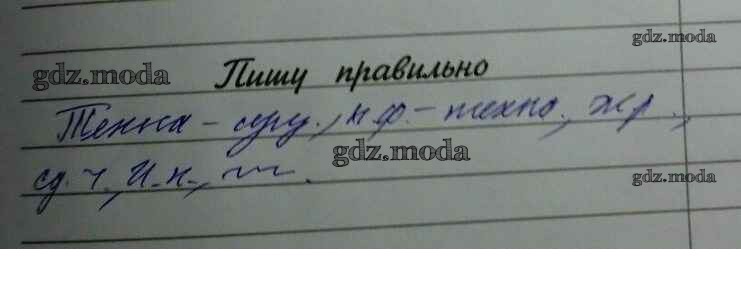 gdz.moda
gdz.moda Пишу правильно
– сущ., н.ф. – ж.р.,
gdz.moda
ед. ч., И. п.,
gdz.moda